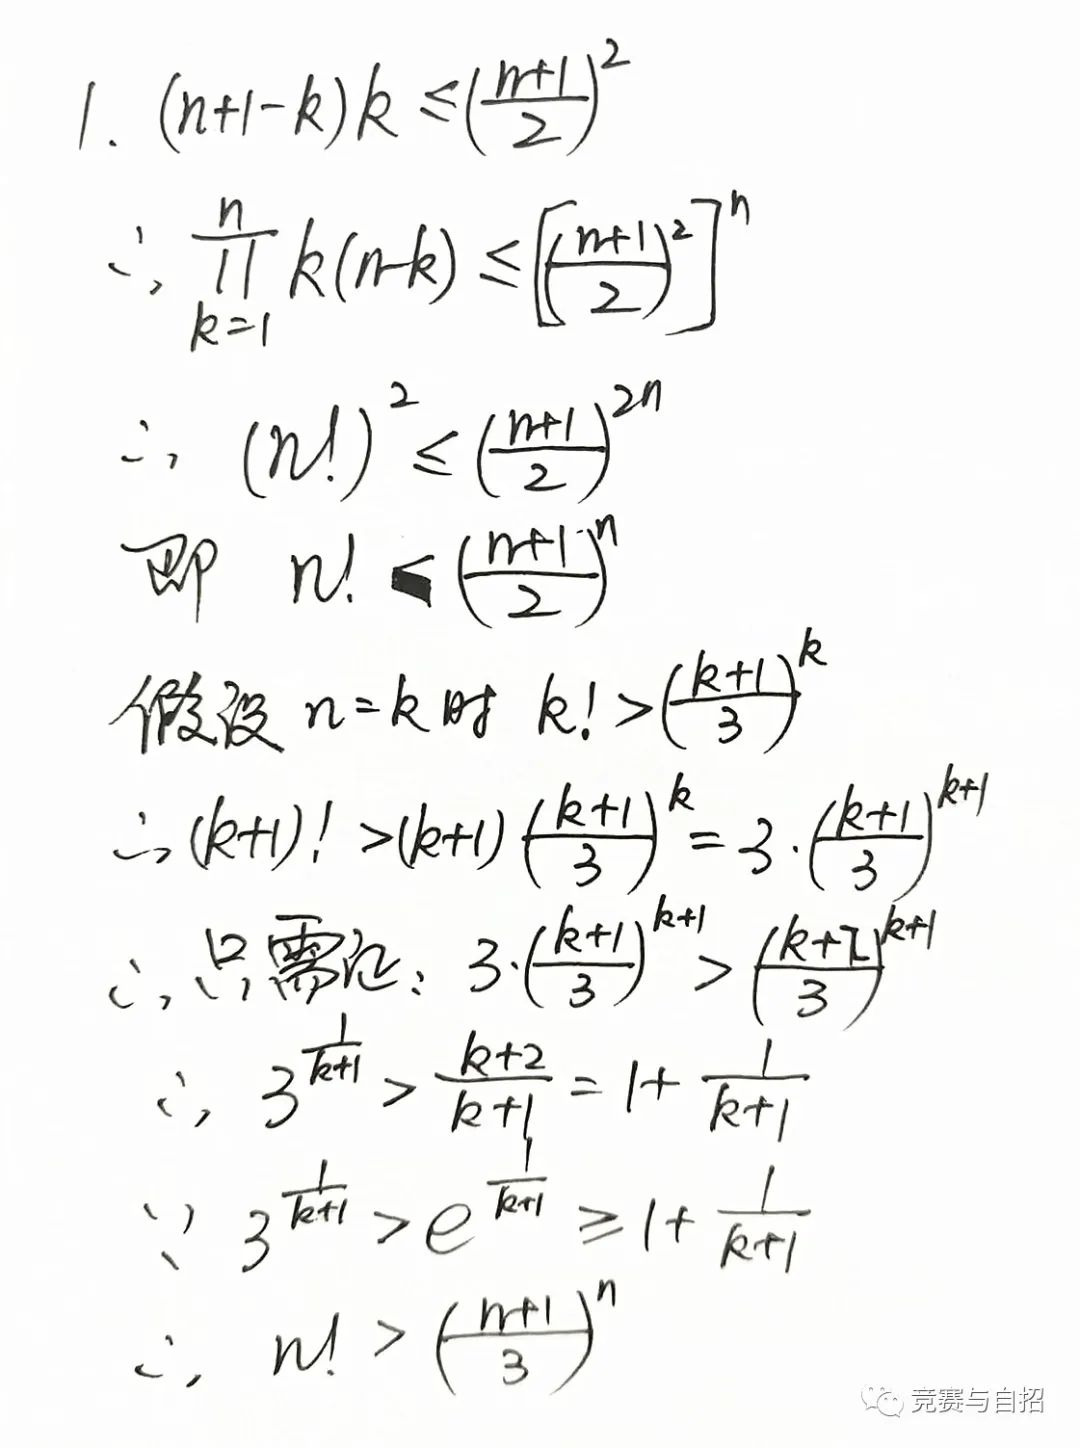 1. (n+1-k)k ≤ (\frac{n+1}{2})^2
∴ \prod_{k=1}^{n} k(n-k) ≤ [(\frac{n+1}{2})^2]^n
∴ (n!)^2 ≤ (\frac{n+1}{2})^{2n}
即 n! < (\frac{n+1}{2})^n
假设 n=k 时 k! > (\frac{k+1}{3})^k
∴ (k+1)! > (k+1)(\frac{k+1}{3})^k = 3·(\frac{k+1}{3})^{k+1}
∴ 只需证: 3·(\frac{k+1}{3})^{k+1} > (\frac{k+2}{3})^{k+1}
∴ 3^{\frac{1}{k+1}} > \frac{k+2}{k+1} = 1+\frac{1}{k+1}
∵ 3^{\frac{1}{k+1}} > e^{\frac{1}{k+1}} ≥ 1+\frac{1}{k+1}
∴ n! > (\frac{n+1}{3})^n
竞赛与自招